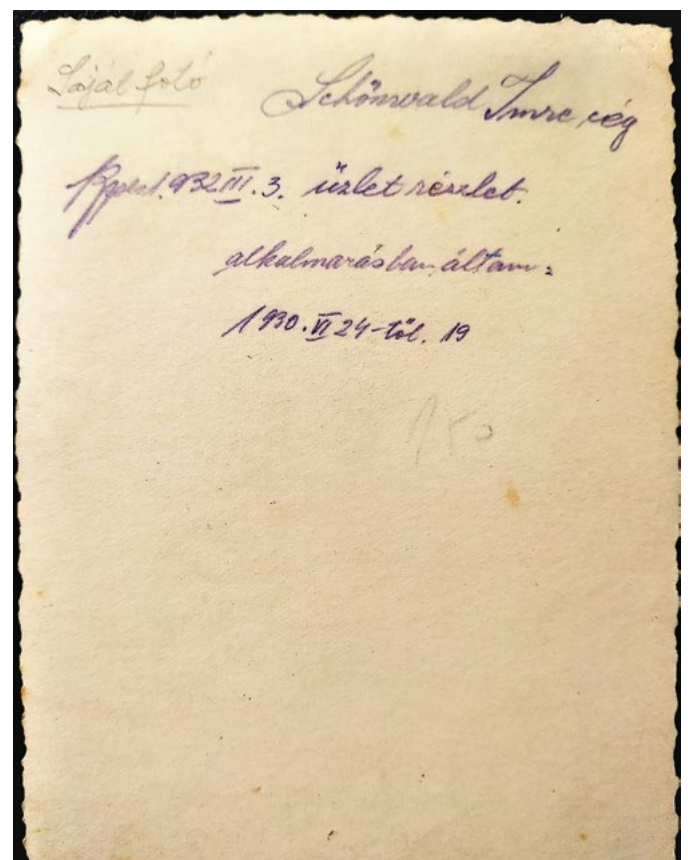 Saját fotó
Schönwald Imre cég
Bpest. 932 III. 3. üzlet részlet.
alkalmazásban áltam:
1930. VI 24-től. 19
150